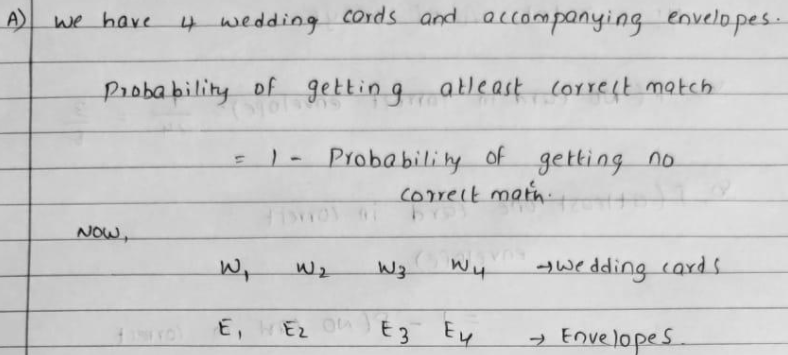 A) we have 4 wedding cards and accompanying envelopes.
Probability of getting atleast correct match
= 1 - Probability of getting no
correct match.
NOW,
W1 W2 W3 W4 → wedding cards
E1 E2 E3 E4 → Envelopes.